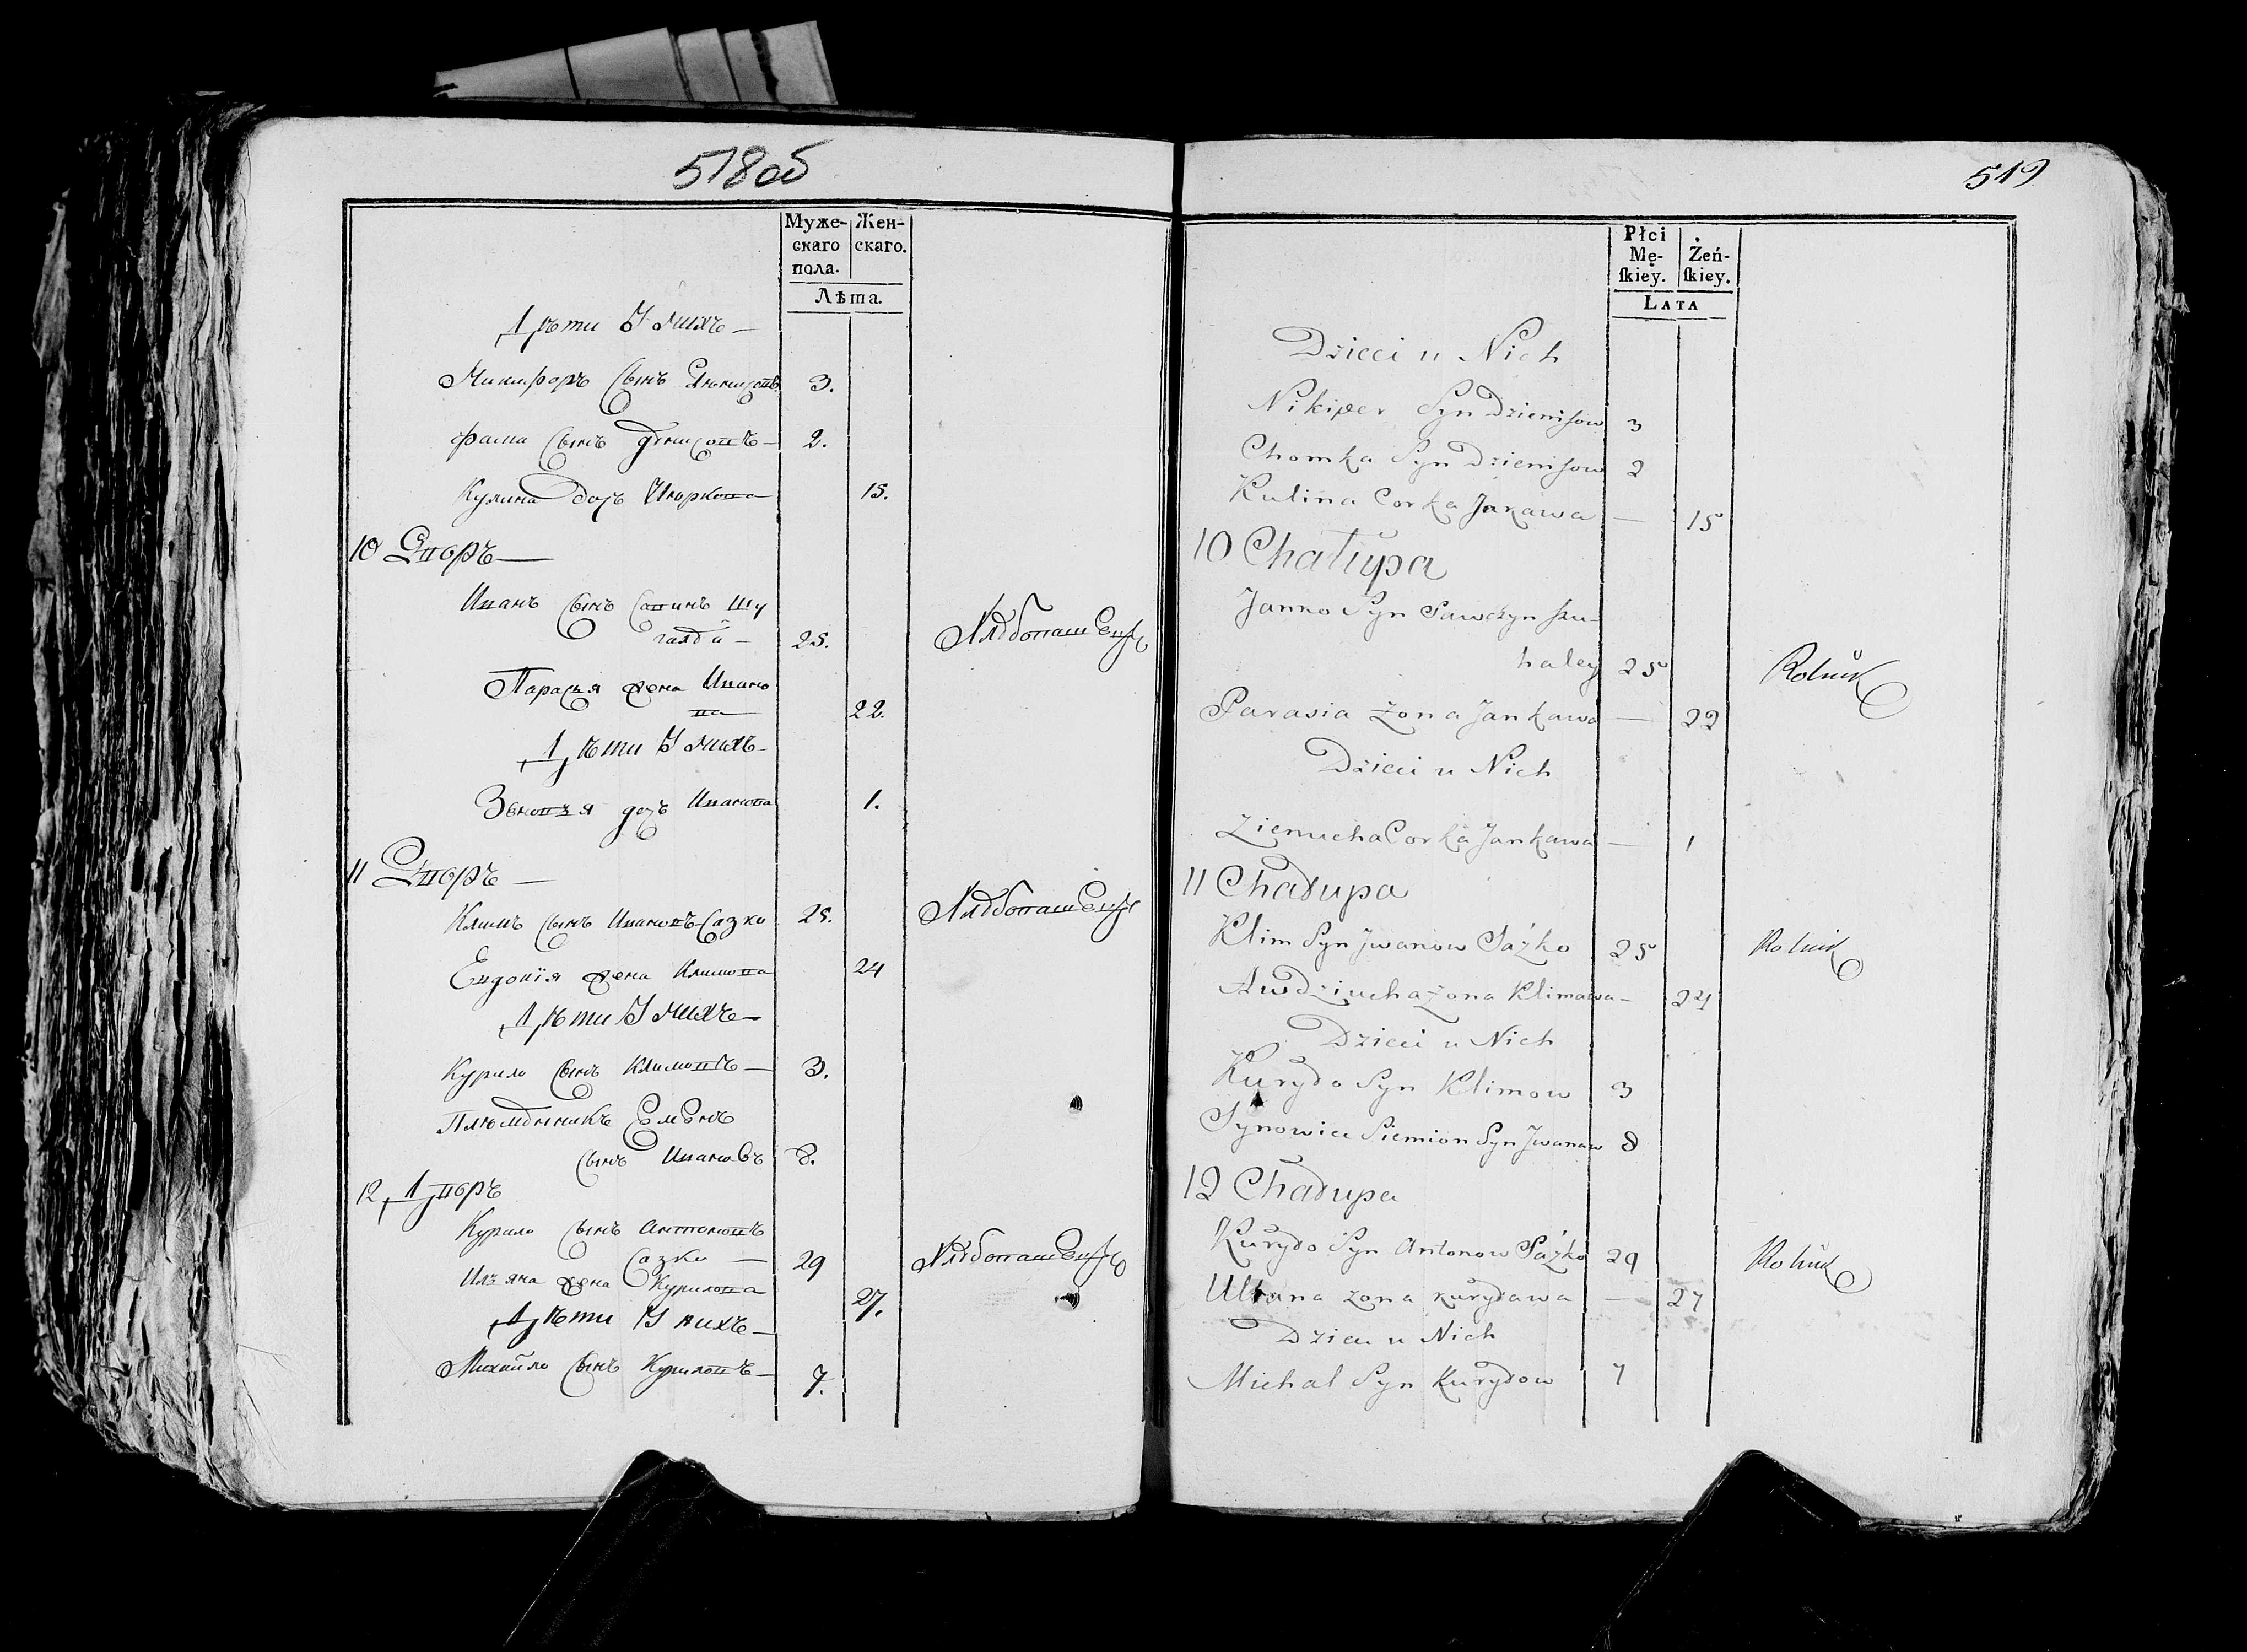 518 об
Муже-
скаго
пола.
Жен-
скаго.
Лѣта.
Дѣти У нихъ —
Никифоръ сынъ 3.
Фама сынъ Денисовъ — 2.
Кулина дочь 15.
10 Дворъ —
Иванъ сынъ Савинъ Шу
галѣй — 25. Хлѣбопашецъ
Парасья жена Ивано
ва — 22.
Дѣти У нихъ —
Зѣновья дочь Иванова 1.
11 Дворъ —
Климъ сынъ Ивановъ Сазко 25. Хлѣбопашецъ
Евдокія жена Климова 24
Дѣти У нихъ —
Курило сынъ Климовъ — 3.
Племѣнникъ Семенъ
сынъ Ивановъ 8.
12 Дворъ
Курило сынъ Антоновъ
Сазко — 29 Хлѣбопашецъ
Ульяна жена Курилова 27.
Дѣти У нихъ —
Михайло сынъ Куриловъ — 7.
519
Płci
Mę-
ſkiey.
Żeń-
ſkiey.
LATA
Dzieci u Nich
Nikiper Syn Dzienisow 3
Chomka Syn Dzienisow 2
Kulina Corka — 15
10 Chałupa
Janko Syn Sawczyn szu-
haley 25 Rolnik
Parasia żona Jankawa — 22
Dzieci u Nich
Zienucha Corka Jankawa — 1
11 Chałupa
Klim Syn Jwanow Sazko 25 Rolnik
Awdziucha żona Klimawa — 24
Dzieci u Nich
Kuryło Syn Klimow 3
Synowiec Siemion Syn Jwanaw 8
12 Chałupa
Kuryło Syn Antonow Sazko 29 Rolnik
Ullana zona kuryława — 27
Dzieci u Nich
Michal Syn Kuryłow 7